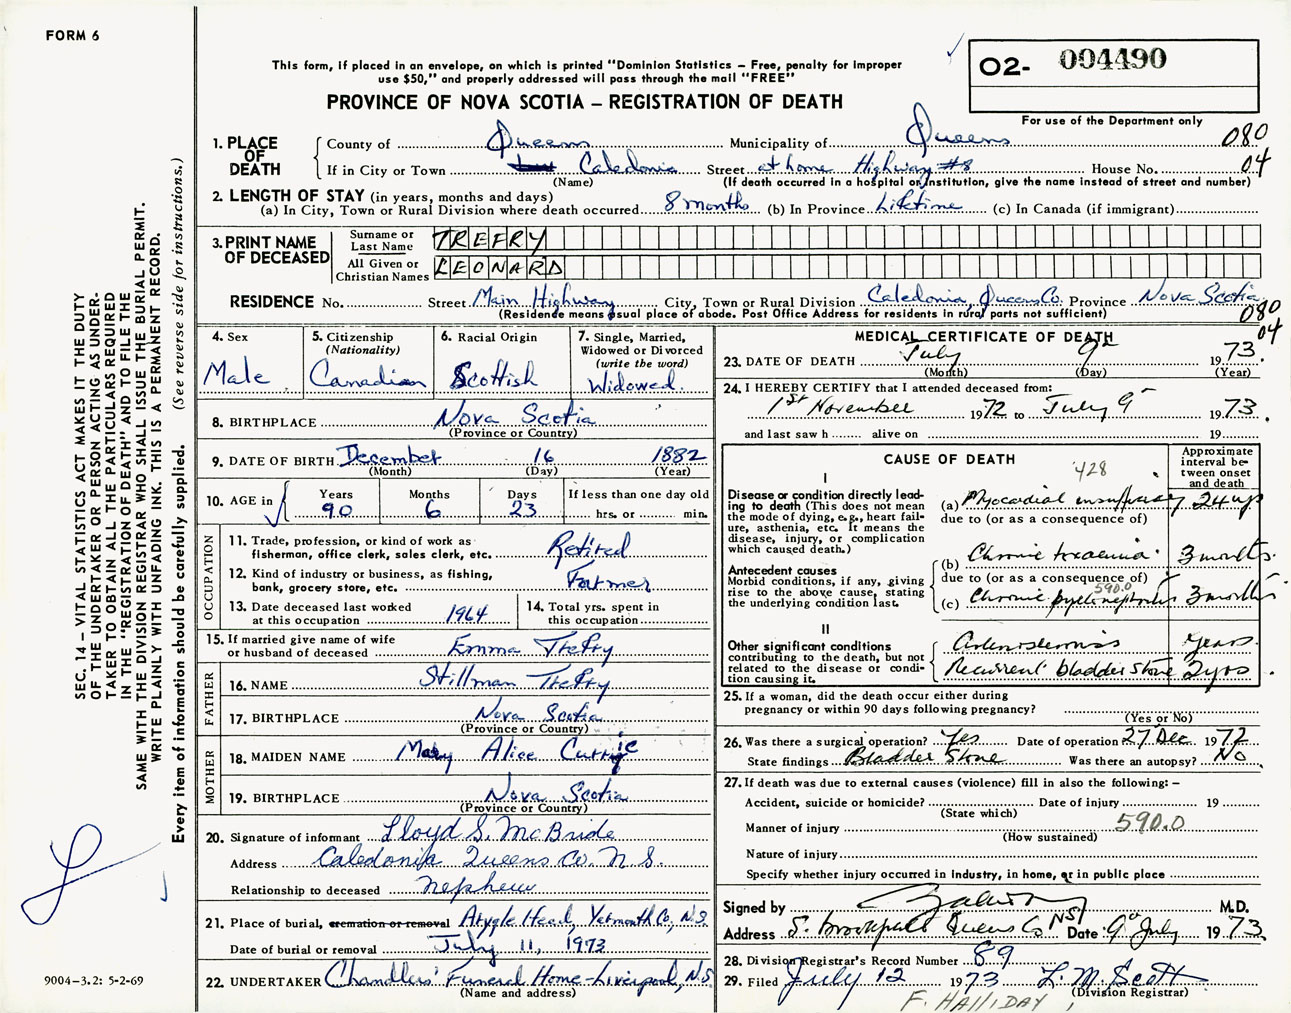 FORM 6
This form, if placed in an envelope, on which is printed "Dominion Statistics – Free, penalty for improper
use $50," and properly addressed will pass through the mail "FREE"
PROVINCE OF NOVA SCOTIA – REGISTRATION OF DEATH
O2- 004490
For use of the Department only
080
04
1. PLACE OF DEATH
County of Queens Municipality of Queens
If in City or Town Caledonia Street at home Highway #8 House No.
(Name) (If death occurred in a hospital or Institution, give the name instead of street and number)
2. LENGTH OF STAY (in years, months and days)
(a) In City, Town or Rural Division where death occurred 8 months (b) In Province Lifetime (c) In Canada (if immigrant)
3. PRINT NAME OF DECEASED
Surname or Last Name TREFRY
All Given or Christian Names LEONARD
RESIDENCE No. Street Main Highway City, Town or Rural Division Caledonia, Queens Co. Province Nova Scotia
(Residence means usual place of abode. Post Office Address for residents in rural parts not sufficient)
080
04
4. Sex
Male
5. Citizenship
(Nationality)
Canadian
6. Racial Origin
Scottish
7. Single, Married,
Widowed or Divorced
(write the word)
Widowed
8. BIRTHPLACE Nova Scotia
(Province or Country)
9. DATE OF BIRTH December 16 1882
(Month) (Day) (Year)
10. AGE in
Years Months Days If less than one day old
90 6 23 hrs. or min.
OCCUPATION
11. Trade, profession, or kind of work as
fisherman, office clerk, sales clerk, etc. Retired
12. Kind of industry or business, as fishing,
bank, grocery store, etc. Farmer
13. Date deceased last worked
at this occupation 1964
14. Total yrs. spent in
this occupation
15. If married give name of wife
or husband of deceased Emma Trefry
FATHER
16. NAME Stillman Trefry
17. BIRTHPLACE Nova Scotia
(Province or Country)
MOTHER
18. MAIDEN NAME Mary Alice Currie
19. BIRTHPLACE Nova Scotia
(Province or Country)
20. Signature of informant Lloyd S. McBride
Address Caledonia Queens Co. N S.
Relationship to deceased nephew
21. Place of burial, cremation or removal Argyle Head, Yarmouth Co, N.S.
Date of burial or removal July 11, 1973
22. UNDERTAKER Chandlers' Funeral Home – Liverpool, N.S.
(Name and address)
MEDICAL CERTIFICATE OF DEATH
23. DATE OF DEATH July 9 1973.
(Month) (Day) (Year)
24. I HEREBY CERTIFY that I attended deceased from:
1st November 1972 to July 9 1973.
and last saw h alive on 19
CAUSE OF DEATH
428
Approximate
interval be-
tween onset
and death
I
Disease or condition directly lead-
ing to death (This does not mean
the mode of dying, e.g., heart fail-
ure, asthenia, etc. It means the
disease, injury, or complication
which caused death.)
(a) Myocardial insufficiency
due to (or as a consequence of)
Antecedent causes
Morbid conditions, if any, giving
rise to the above cause, stating
the underlying condition last.
(b) Chronic 3 months.
due to (or as a consequence of)
590.0
(c) Chronic pyelonephritis 3 months
II
Other significant conditions
contributing to the death, but not
related to the disease or condi-
tion causing it.
years.
Recurrent bladder stone 2 yrs
25. If a woman, did the death occur either during
pregnancy or within 90 days following pregnancy?
(Yes or No)
26. Was there a surgical operation? Yes Date of operation 27 Dec 1972
State findings Bladder Stone Was there an autopsy? No
27. If death was due to external causes (violence) fill in also the following: –
Accident, suicide or homicide? Date of injury 19
(State which)
Manner of injury 590.0
(How sustained)
Nature of injury
Specify whether injury occurred in industry, in home, or in public place
Signed by M.D.
Address S. Brookfield Queens Co NS Date 9 July 1973.
28. Division Registrar's Record Number 89
29. Filed July 12 1973 L. M. Scott
(Division Registrar)
F. HALLIDAY
SEC. 14 – VITAL STATISTICS ACT MAKES IT THE DUTY
OF THE UNDERTAKER OR PERSON ACTING AS UNDER-
TAKER TO OBTAIN ALL THE PARTICULARS REQUIRED
IN THE "REGISTRATION OF DEATH" AND TO FILE THE
SAME WITH THE DIVISION REGISTRAR WHO SHALL ISSUE THE BURIAL PERMIT.
WRITE PLAINLY WITH UNFADING INK. THIS IS A PERMANENT RECORD.
Every item of information should be carefully supplied. (See reverse side for instructions.)
9004-3.2: 5-2-69